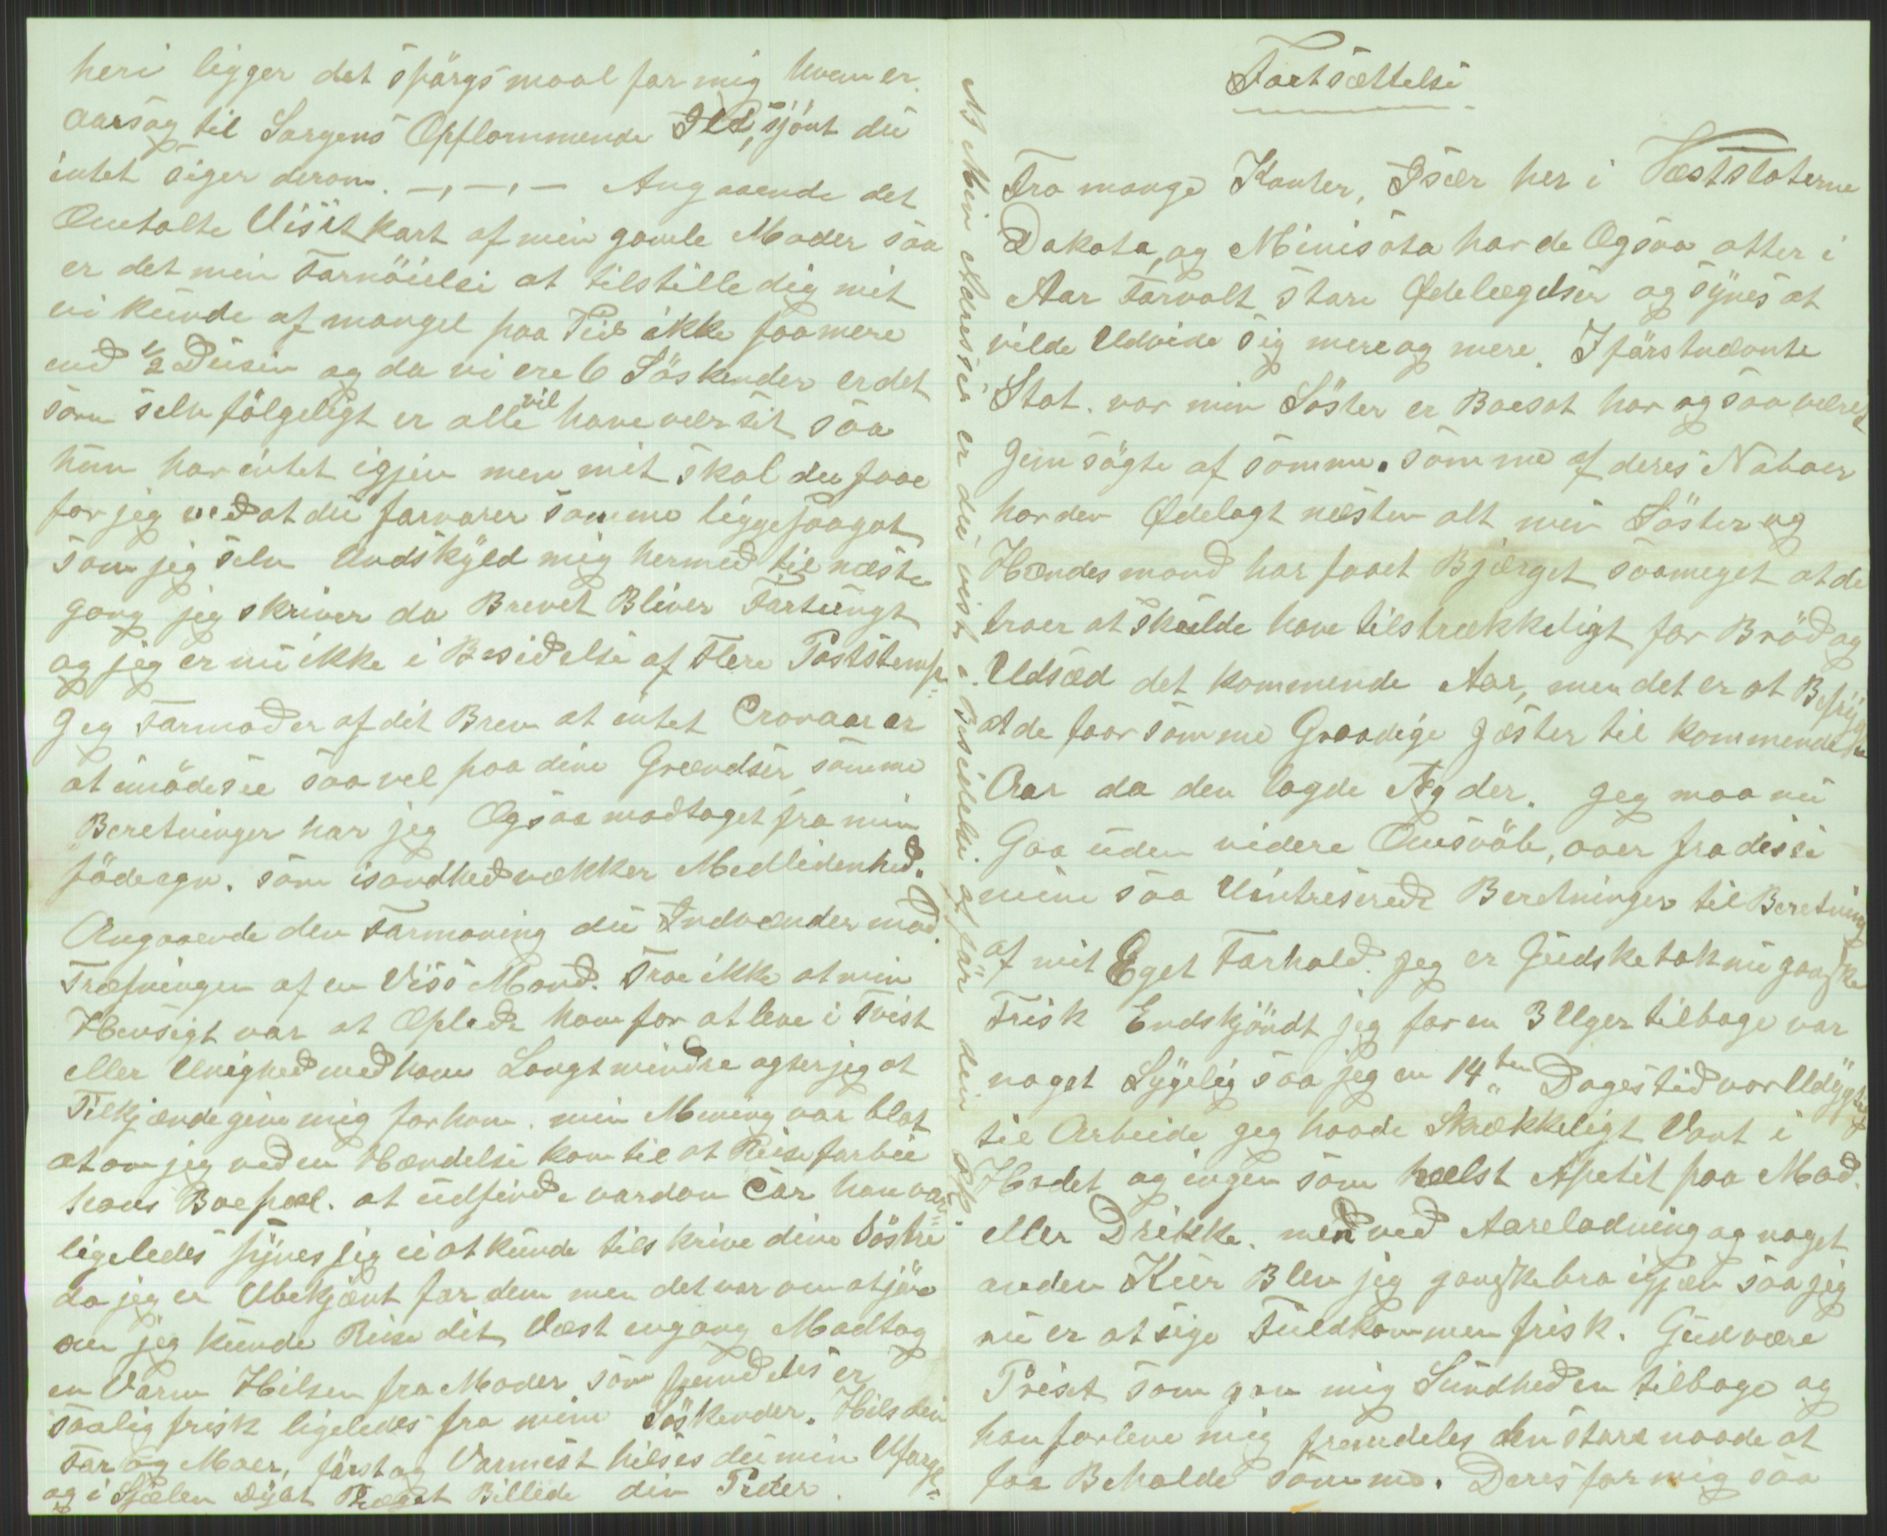 Fortsættelse
Fra mange Kanter, Især her i Væststaterne
Dakota, og Minisota har de Ogsaa atter i
Aar Forvalt store Ødelægelser og synes at
vilde Udvide sig mere og mere. I förstnævnte
Stat. vor min Söster er Boesat har ogsaa været
gjemsögte af somme. somme af deres Naboer
har den Ødelagt næsten alt min Söster og
Hændes mand har faaet Bjærget saameget at de
troer at skulde have tilstrækkeligt for Bröd og
Udsæd det kommende Aar, men det er at Befrygte
at de faar somme Graadige Jæster til kommende
Aar da den lagde Æg der. Jeg maa nu
Gaa uden videre Omsvöb, over fra disse
mine saa Uintreserede Beretninger til Beretning
af mit Eget Forhold. jeg er Gudsketak nu ganske
Frisk Endskjöndt jeg for en 3 Uger tilbage var
noget Sygelig saa jeg en 14ten Dages tid var Udygtig
til Arbeide jeg haade Skrækkeligt Vont i
Hodet og ingen som hælst Apetit paa Mad.
eller Drikke. men ved Aareladning og noget
anden Kur Blev jeg ganske bra igjæn saa jeg
nu er at sige Fuldkommen frisk. Gud være
Priset som gav mig Sundheden tilbage og
han forleve mig fremdeles den store naade at
faa Beholde somme. Deres for mig saa
heri ligger det spörgsmaal for mig hvem er
aarsag til Sorgens Opflammende Ild, sjönt du
intet siger derom. —,—,— Angaaende det
Omtalte Visitkart af min gamle Moder saa
er det min Fornöielse at tilstille dig mit
vi kunde af mangel paa Tid ikke faa mere
end 1/2 Dusin og da vi ere 6 Söskender er det
som selvfölgeligt er alle vil have vær sit saa
hun har intet igjen men mit skal du faae
for jeg ved at du forvarer somme ligge saagot
som jeg selv Undskyld mig hermed til næste
gang jeg skriver da Brevet Bliver Fortungt
og jeg er nu ikke i Besidelse af Flere Poststemp.
Jeg Formoder af dit Brev at intet Cronaar er
at imödese saavel paa dine Grændser somme
Beretninger har jeg Ogsaa modtaget fra min
födeegn. som isandhed vækker Medlidenhed.
Angaaende den Formaning du Indvænder mod
Træfningen af en Viss Mand. Troe ikke at min
Hensigt var at Oplede ham for at leve i Tvist
eller Uenighed med ham Langt mindre agter jeg at
Tilkjændegive mig for ham. min Mening var blot
at om jeg ved en Hændelse kom til at Reise forbie
hans Boepæl. at udfinde vardan Car han var
ligeledes synes jeg ei at kunde tilskrive dine Söstre
da jeg er Ubekjænt for dem men det var om at jöre
om jeg kunde Reise dit Væst engang Modtag
en Varm Hilsen fra Moder som fremdeles er
saalig frisk ligeledes fra mine Söskender. Hils din
Far og Moer, först og Varmest hilses du min Uforgl.
og i Sjælen Dybt Præget Billede din Peder.
NB Min Adresse er du vist i Besidelse af för din PK.